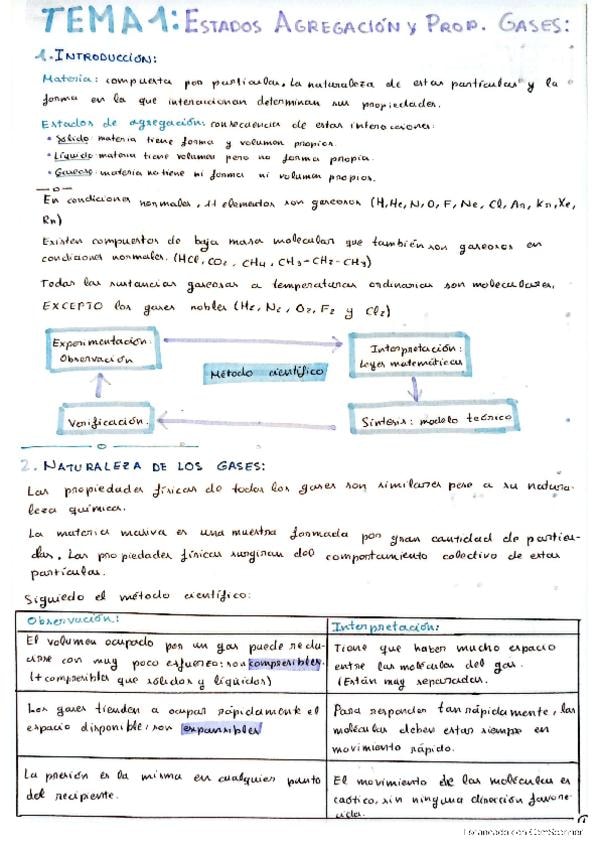 TEMA 1: ESTADOS AGREGACIÓN Y PROP. GASES:
1. INTRODUCCIÓN:
Materia: compuesta por partículas. La naturaleza de estas partículas y la
forma en la que interaccionan determinan sus propiedades.
Estados de agregación: consecuencia de estas interacciones:
• Sólido: materia tiene forma y volumen propios.
• Líquido: materia tiene volumen pero no forma propia.
• Gaseoso: materia no tiene ni forma ni volumen propios.
En condiciones normales, 11 elementos son gaseosos (H, He, N, O, F, Ne, Cl, Ar, Kr, Xe,
Rn)
Existen compuestos de baja masa molecular que también son gaseosos en
condiciones normales. (HCl, CO2, CH4, CH3-CH2-CH3)
Todas las sustancias gaseosas a temperaturas ordinarias son moleculares,
EXCEPTO los gases nobles (He, Ne, O2, F2 y Cl2)
Experimentación: Interpretación:
Observación Leyes matemáticas
Método científico
Verificación. Síntesis: modelo teórico
2. NATURALEZA DE LOS GASES:
Las propiedades físicas de todos los gases son similares pese a su natura-
leza química.
La materia masiva es una muestra formada por gran cantidad de partícu-
las. Las propiedades físicas surgirán del comportamiento colectivo de estas
partículas.
Siguiedo el método científico:
Observación: Interpretación:
El volumen ocupado por un gas puede redu-
cirse con muy poco esfuerzo: son compresibles.
(+ compresibles que sólidos y líquidos)
Tiene que haber mucho espacio
entre las moléculas del gas.
(Están muy separadas.
Los gases tienden a ocupar rápidamente el
espacio disponible: son expansibles
Para responder tan rápidamente, las
moléculas deben estar siempre en
movimiento rápido.
La presión es la misma en cualquier punto
del recipiente.
El movimiento de las moléculas es
caótico, sin ninguna dirección favore-
cida.
1
Escaneado con CamScanner